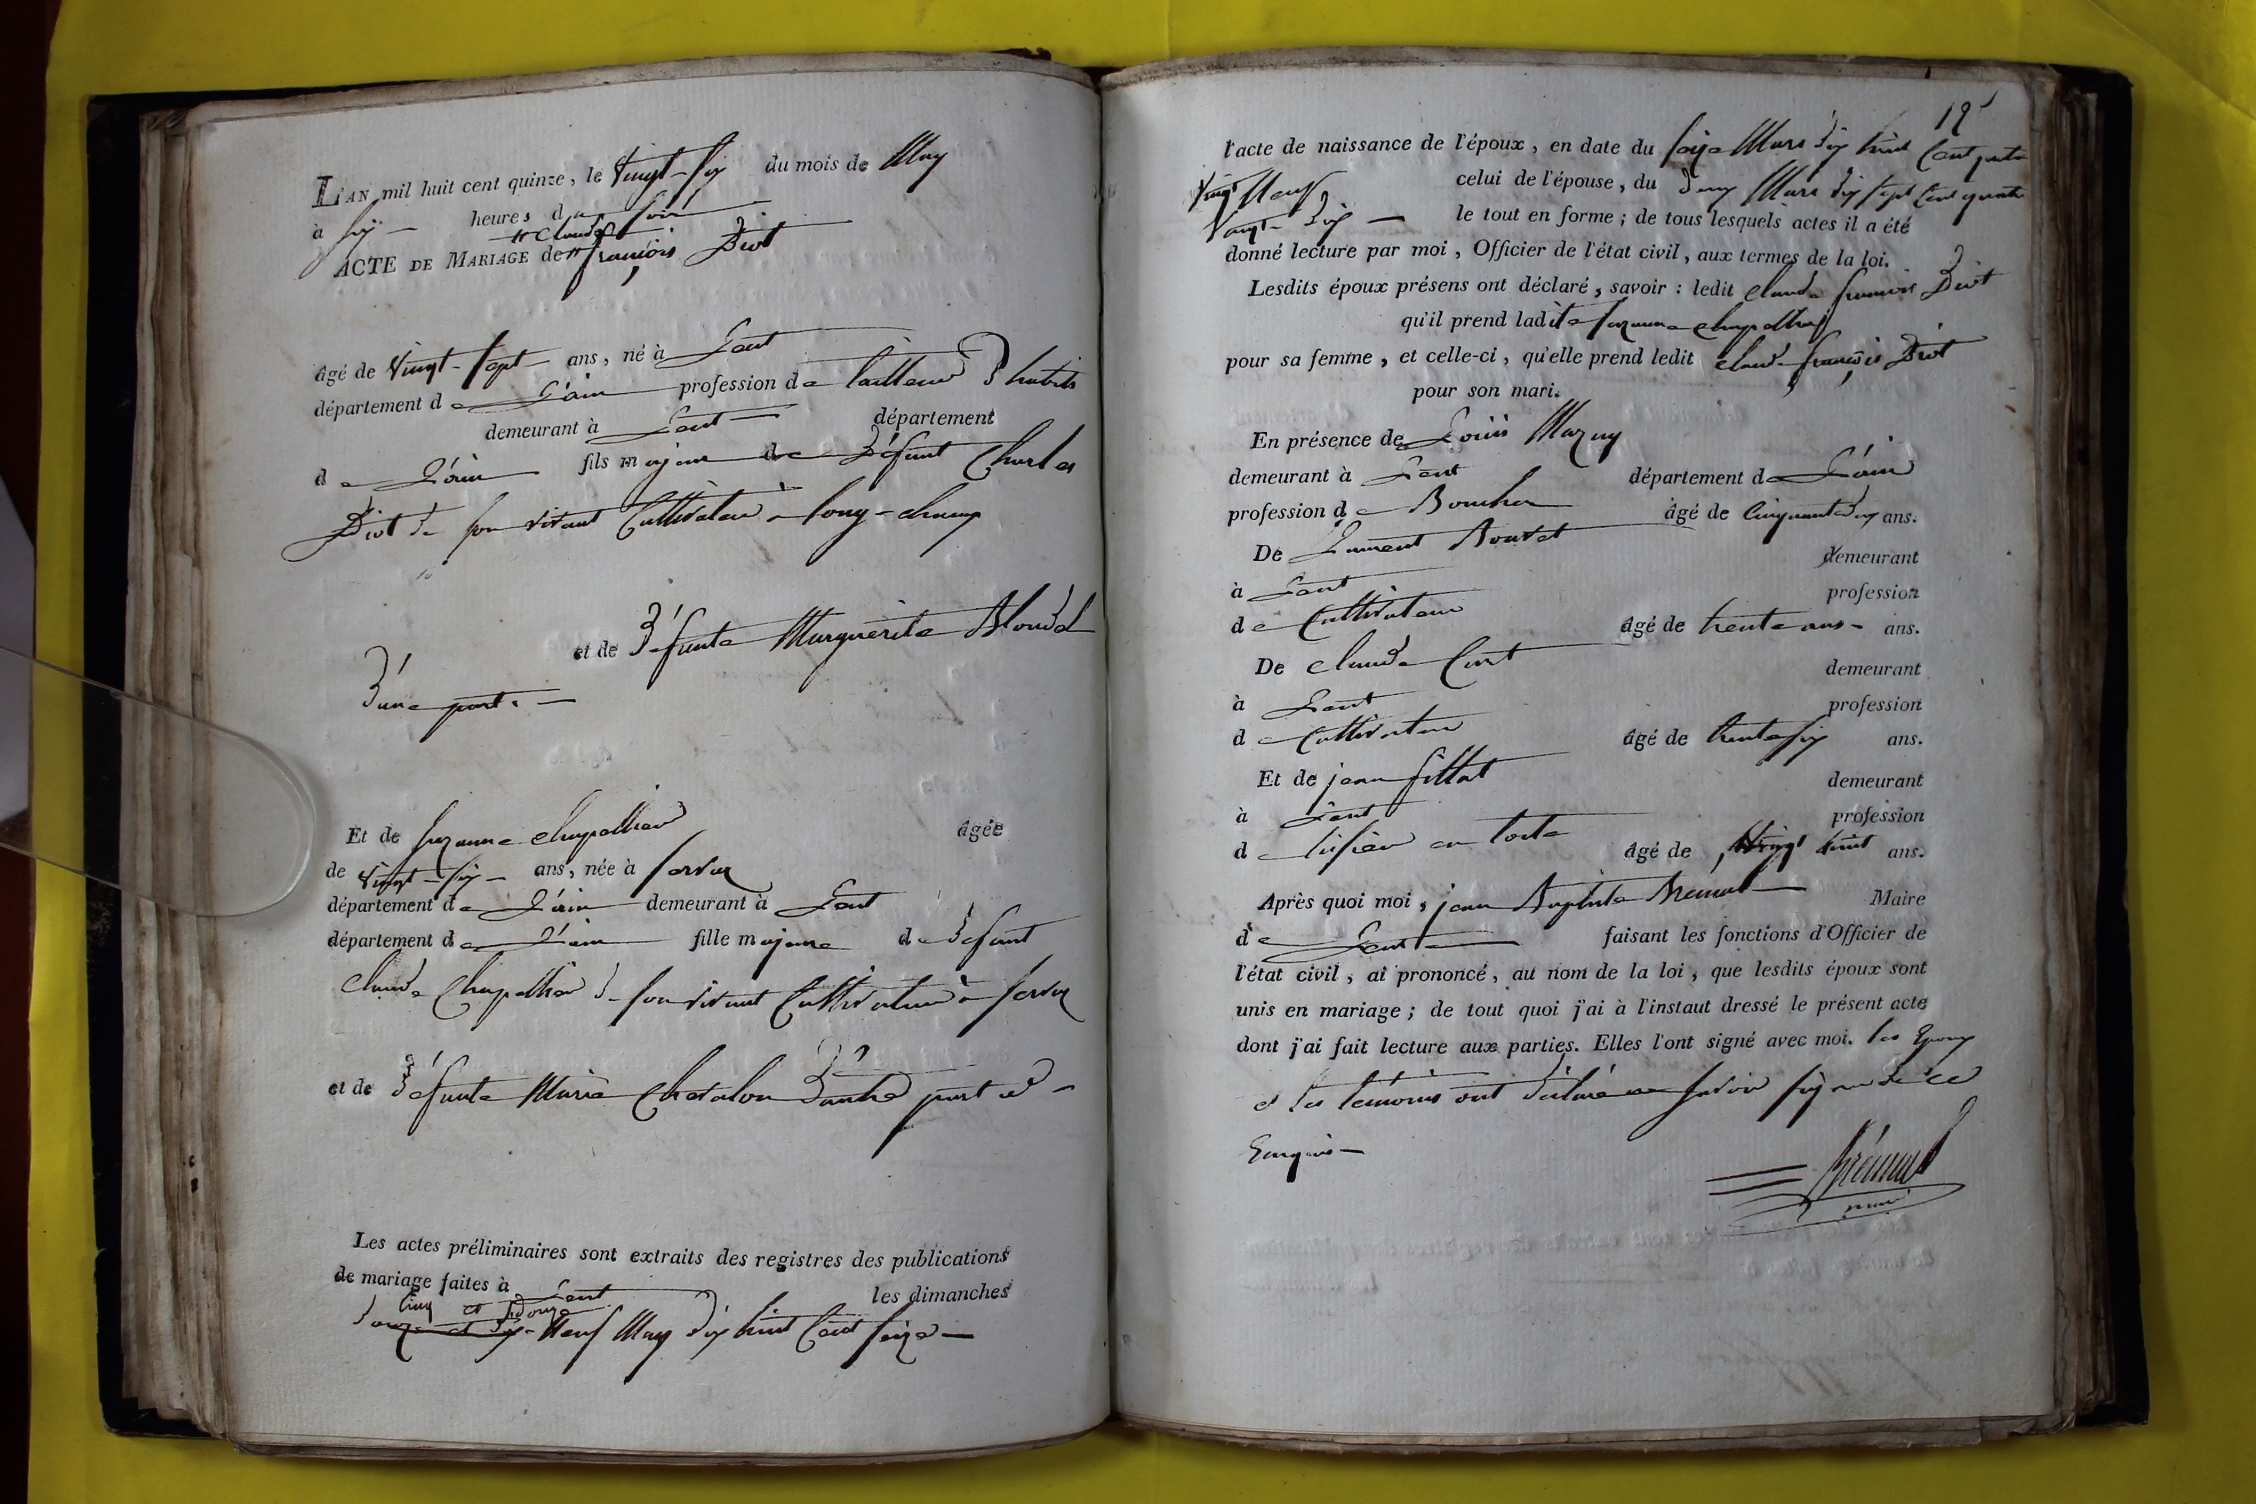 L'AN mil huit cent quinze, le vingt-six du mois de May
à six heures du soir
Claude
ACTE DE MARIAGE de françois Diot
âgé de vingt-sept ans, né à Lent
département de L'ain profession de tailleur d'habits
demeurant à Lent département
de L'ain fils majeur de Défunt Charles
Diot de son vivant Cultivateur à long-champ
et de Défunte Marguerite Blondel
D'une part. —
Et de suzanne chapellier âgée
de vingt-six ans, née à servas
département de L'ain demeurant à Lent
département de L'ain fille majeure de défunt
claude Chapellier de son vivant Cultivateur à servas
et de Défunte Marie Chevalon D'autre part
Les actes préliminaires sont extraits des registres des publications
de mariage faites à Lent les dimanches
Cinq et Douze
Douze et dix-Neuf May dix huit Cent seize —
l'acte de naissance de l'époux, en date du seize Mars dix huit Cent quatre
vingt Neuf celui de l'épouse, du deux Mars dix sept Cent quatre
vingt-dix — le tout en forme; de tous lesquels actes il a été
donné lecture par moi, Officier de l'état civil, aux termes de la loi.
Lesdits époux présens ont déclaré, savoir : ledit claude françois Diot
qu'il prend ladite suzanne chapellier
pour sa femme, et celle-ci, qu'elle prend ledit claude françois Diot
pour son mari.
En présence de Louis Mazuy
demeurant à Lent département de L'ain
profession de Boucher âgé de Cinquante deux ans.
De Laurent Bouvet demeurant
à Lent profession
de Cultivateur âgé de trente ans- ans.
De claude Curt demeurant
à Lent profession
de Cultivateur âgé de trente six ans.
Et de jean fillat demeurant
à Lent profession
de tissier en toile âgé de vingt huit ans.
Après quoi moi, jean Baptiste Brémal Maire
de Lent faisant les fonctions d'Officier de
l'état civil, ai prononcé, au nom de la loi, que lesdits époux sont
unis en mariage; de tout quoi j'ai à l'instaut dressé le présent acte
dont j'ai fait lecture aux parties. Elles l'ont signé avec moi. les Epoux
et les témoins ont déclaré ne savoir signer de ce
Enquis —
maire